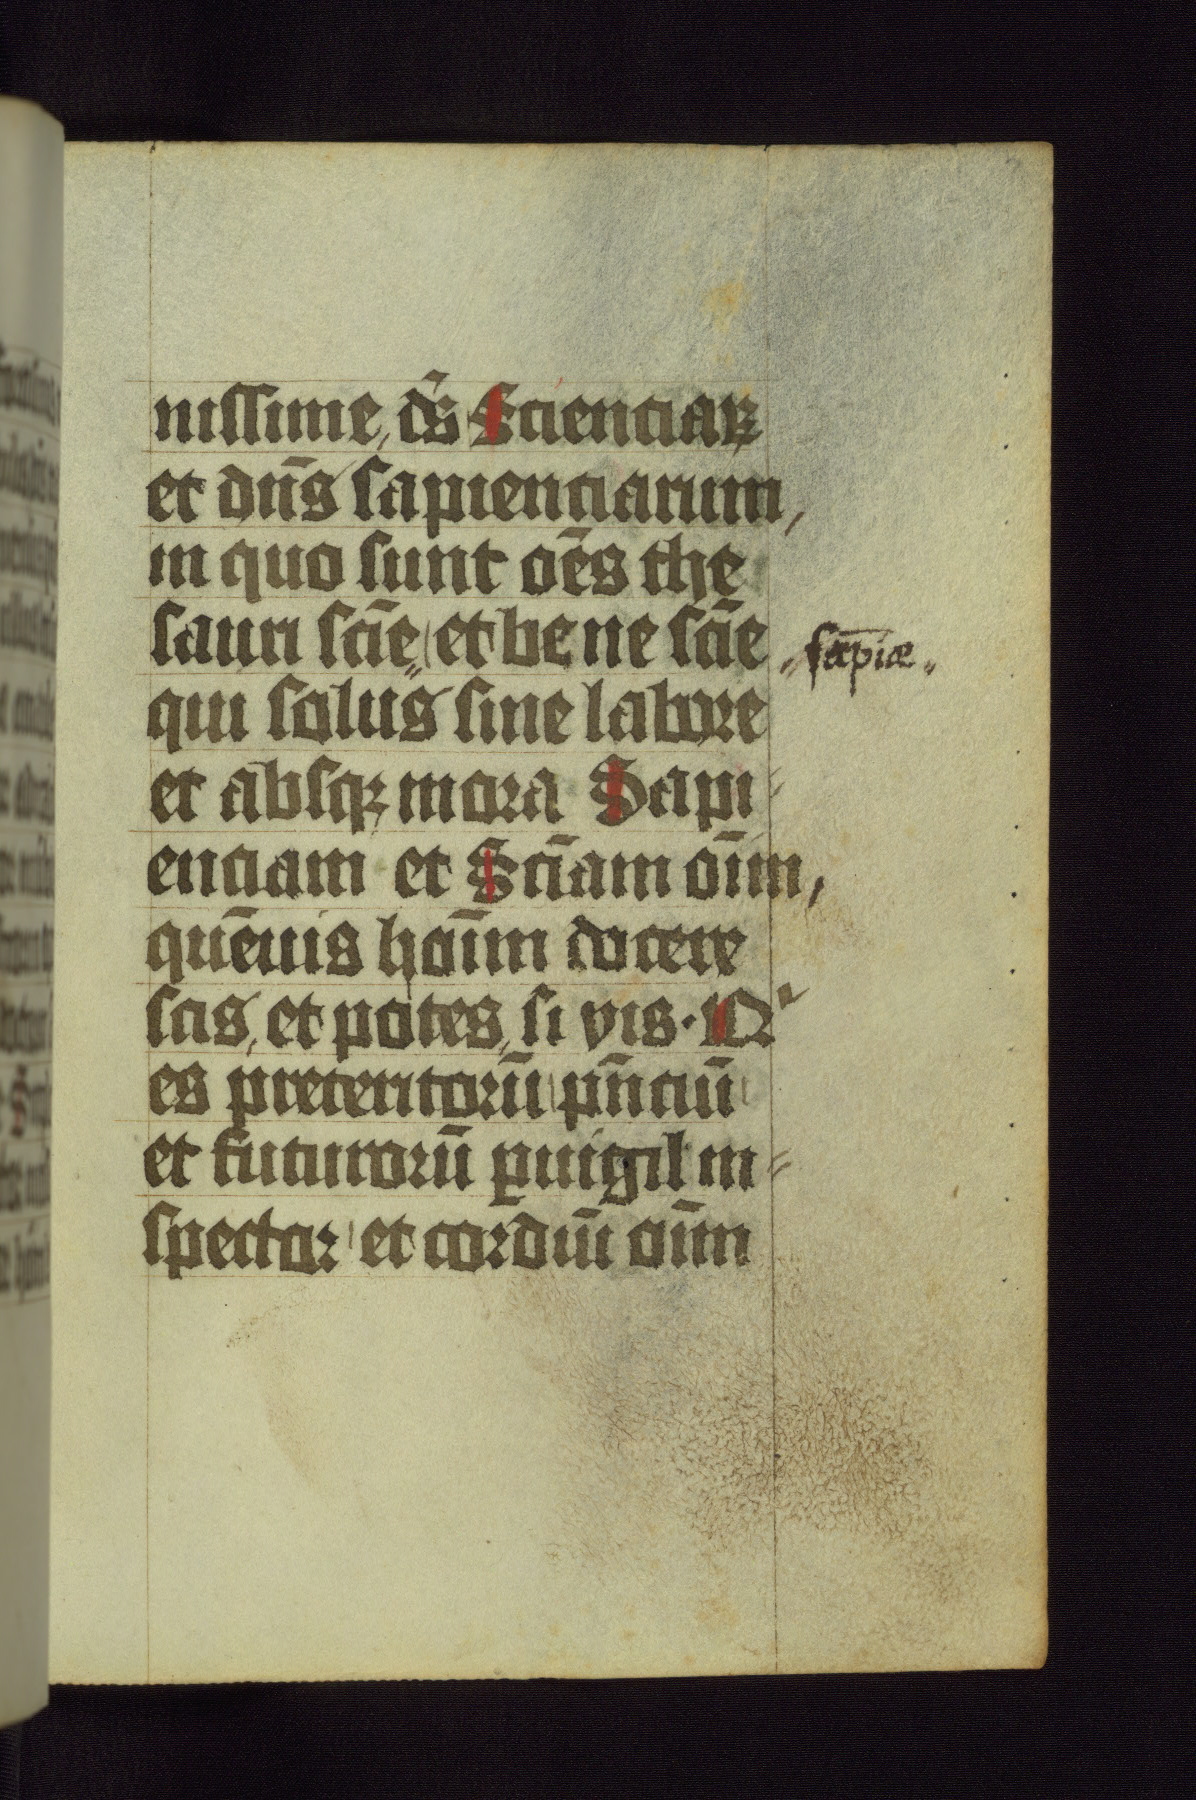 nissime, ds̄ Scienciaꝝ
et dn̄s sapienciarum,
in quo sunt oēs the
sauri scīe, et bene scīe „sap̄iæ„
qui solus sine labore
et absqꝫ mora Sapi-
enciam et Scīam oīm,
quēuis hoīm docere
scis, et potes, si vis. Qⁱ
es preteritorū pn̄ciū
et futurorū ꝑuigil in-
spector et cordiū oīm